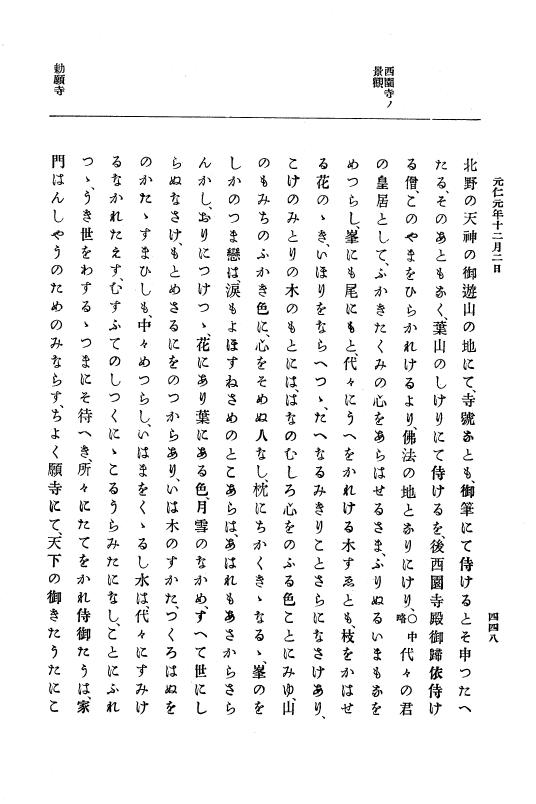 元仁元年十二月二日
四四八
西園寺ノ
景觀
勅願寺
北野の天神の御遊山の地にて、寺號なとも、御筆にて侍けるとそ申つたへ
たる、そのあともなく、葉山のしけりにて侍けるを、後西園寺殿御歸依侍け
る僧、このやまをひらかれけるより、佛法の地となりにけり、〇中略代々の君
の皇居として、ふかきたくみの心をあらはせるさま、ふりぬるいまもなを
めつらし、峯にも尾にもと、代々にうへをかれける木すゑとも、枝をかはせ
る花のゝき、いほりをならへつゝ、たへなるみきりことさらになさけあり、
こけのみとりの木のもとには、はなのむしろ心をのふる色ことにみゆ、山
のもみちのふかき色に、心をそめぬ人なし、枕にちかくきゝなるゝ、峯のを
しかのつま戀は、涙もよほすねさめのとこあらは、あはれもあさからさら
んかし、おりにつけつゝ、花にあり葉にある色、月雪のなかめ、すへて世にし
らぬなさけ、もとめさるにをのつからあり、いは木のすかた、つくろはぬを
のかたゝすまひしも、中々めつらし、いはまをくゝるし水は、代々にすみけ
るなかれたえす、むすふてのしつくにゝこるうらみたになし、ことにふれ
つゝ、うき世をわするゝつまにそ待へき、所々にたてをかれ侍御たうは、家
門はんしやうのためのみならす、ちよく願寺にて、天下の御きたうたにこ